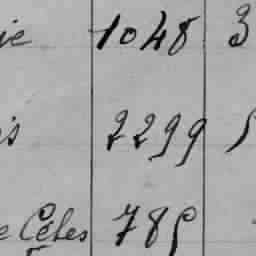 ie 1048 3
is 2299
e Côtes 785